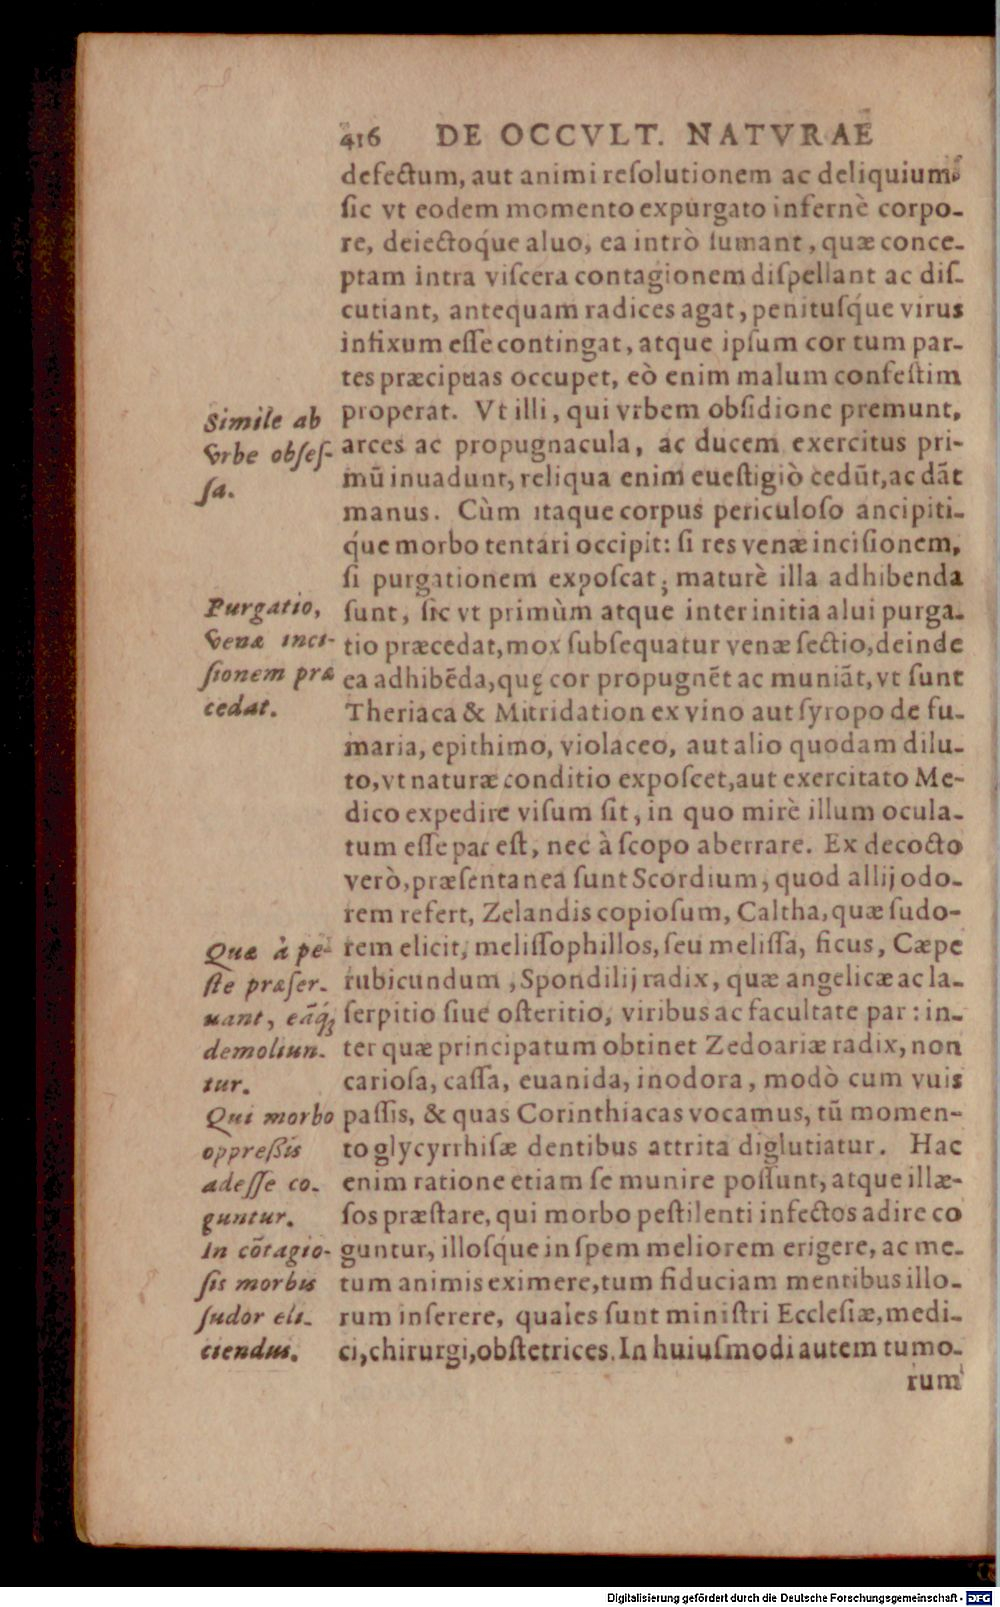 416 DE OCCVLT. NATVRAE
defectum, aut animi reſolutionem ac deliquium:
ſic vt eodem momento expurgato infernè corpo-
re, deiectoq́ue aluo, ea intrò ſumant, quæ conce-
ptam intra viſcera contagionem diſpellant ac diſ-
cutiant, antequam radices agat, penituſq́ue virus
infixum eſſe contingat, atque ipſum cor tum par-
tes præcipuas occupet, eò enim malum confeſtim
properat. Vt illi, qui vrbem obſidione premunt,
arces ac propugnacula, ac ducem exercitus pri-
mū inuadunt, reliqua enim eueſtigiò cedūt, ac dāt
manus. Cùm itaque corpus periculoſo ancipiti-
q́ue morbo tentari occipit: ſi res venæ inciſionem,
ſi purgationem expoſcat; maturè illa adhibenda
ſunt, ſic vt primùm atque inter initia alui purga-
tio præcedat, mox ſubſequatur venæ ſectio, deinde
ea adhibēda, quę cor propugnēt ac muniāt, vt ſunt
Theriaca & Mitridation ex vino aut ſyropo de fu-
maria, epithimo, violaceo, aut alio quodam dilu-
to, vt naturæ conditio expoſcet, aut exercitato Me-
dico expedire viſum ſit, in quo mirè illum ocula-
tum eſſe par eſt, nec à ſcopo aberrare. Ex decocto
verò, præſentanea ſunt Scordium, quod allij odo-
rem refert, Zelandis copioſum, Caltha, quæ ſudo-
rem elicit, meliſſophillos, ſeu meliſſa, ficus, Cæpe
rubicundum, Spondilij radix, quæ angelicæ ac la-
ſerpitio ſiue oſteritio, viribus ac facultate par: in-
ter quæ principatum obtinet Zedoariæ radix, non
carioſa, caſſa, euanida, inodora, modò cum vuis
paſſis, & quas Corinthiacas vocamus, tū momen-
to glycyrrhiſæ dentibus attrita diglutiatur. Hac
enim ratione etiam ſe munire poſſunt, atque illæ-
ſos præſtare, qui morbo peſtilenti infectos adire co
guntur, illoſq́ue in ſpem meliorem erigere, ac me-
tum animis eximere, tum fiduciam mentibus illo-
rum inſerere, quales ſunt miniſtri Eccleſiæ, medi-
ci, chirurgi, obſtetrices. In huiuſmodi autem tumo-
rum
Simile ab
Vrbe obſeſ-
ſa.
Purgatio,
Venæ inci-
ſionem præ
cedat.
Quæ à pe-
ſte præſer-
uant, eāq́;
demoliun-
tur.
Qui morbo
oppreßis
adeſſe co-
guntur.
In cōtagio-
ſis morbis
ſudor eli-
ciendus.
Digitalisierung gefördert durch die Deutsche Forschungsgemeinschaft - DFG